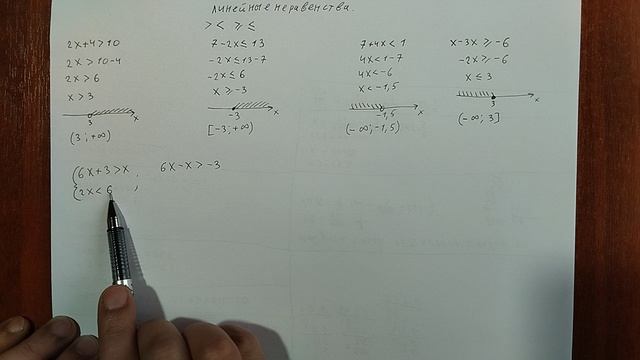 линейные неравенства.
> < ⩾ ⩽
2x+4>10
2x>10-4
2x>6
x>3
3 x
(3;+∞)
7-2x⩽13
-2x⩽13-7
-2x⩽6
x⩾-3
-3 x
[-3;+∞)
7+4x<1
4x<1-7
4x<-6
x<-1,5
-1,5 x
(-∞;-1,5)
x-3x⩾-6
-2x⩾-6
x⩽3
3 x
(-∞;3]
{6x+3>x, 6x-x>-3
{2x<6 ,